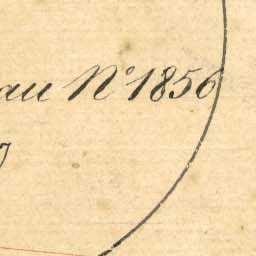 au Nº 1856